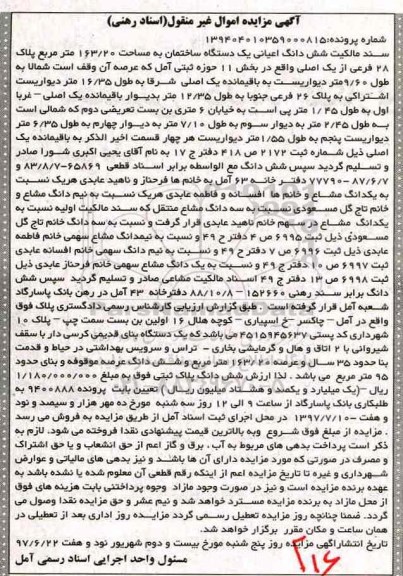 آگهی مزایده اموال غیر منقول(اسناد رهنی)
شماره پرونده:۱۳۹۴۰۴۰۱۰۳۵۹۰۰۰۸۱۵
سند مالکیت شش دانگ اعیانی یک دستگاه ساختمان به مساحت ۱۶۳/۲۰ متر مربع پلاک
۲۸ فرعی از یک اصلی واقع در بخش ۱۱ حوزه ثبتی آمل که عرصه آن وقف است شمالا به
طول ۹/۶۰متر دیواریست به باقیمانده یک اصلی شرقا به طول ۱۶/۳۵ متر دیواریست
اشتراکی به پلاک ۲۶ فرعی جنوبا به طول ۱۲/۳۵ متر بدیوار باقیمانده یک اصلی - غربا
اول به طول ۱/۴۵ متر پی است به خیابان ۶ متری بن بست تعریضی دوم که شمالی است
به طول ۲/۴۵ متر به دیوار سوم به طول ۷/۱۰ متر به دیوار چهارم به طول ۶/۳۵ متر
دیواریست پنجم به طول ۱/۵۵متر دیواریست هر چهار قسمت اخیر الذکر به باقیمانده یک
اصلی ذیل شماره ثبت ۲۱۷۲ ص ۴۱۸ دفتر ج ۱۷ به نام آقای یحیی اکبری شورا صادر
و تسلیم گردید سپس شش دانگ مع الواسطه برابر اسناد قطعی ۶۵۸۶۹-۸۳/۸/۷ و
۸۷/۶/۷ - ۷۷۷۹۰ دفتر خانه ۶۳ آمل به خانم ها فرحناز و ناهید عابدی هریک نسبت
به یکدانگ مشاع و خانم ها افسانه و فاطمه عابدی هریک نسبت به نیم دانگ مشاع و
خانم تاج گل مسعودی نسبت به سه دانگ مشاع منتقل که سند مالکیت اولیه نسبت به
یکدانگ مشاع در سهم خانم ناهید عابدی قرار گرفت و نسبت به سه دانگ خانم تاج گل
مسعودی ذیل ثبت ۶۹۹۵ ص ۴ دفتر ج ۴۹ و نسبت به نیمدانگ مشاع سهمی خانم فاطمه
عابدی ذیل ثبت ۶۹۹۶ ص ۷ دفتر ج ۴۹ و نسبت به نیم دانگ سهمی خانم افسانه عابدی
ثبت ۶۹۹۷ ص ۱۰ دفتر ج ۴۹ و نسبت به یک دانگ مشاع سهمی خانم فرحناز عابدی ذیل
ثبت ۶۹۹۸ ص ۱۳ دفتر ج ۴۹ سند مالکیت مشاعی صادر و تسلیم گردید سپس شش
دانگ برابر سند رهنی ۱۵۲۶۶۰ – ۸۸/۱۰/۸ دفترخانه ۴۳ آمل در رهن بانک پاسارگاد
شعبه آمل قرار گرفته است . طبق گزارش ارزیابی کارشناس رسمی دادگستری پلاک فوق
واقع در آمل – چاکسر – خ اسپیاری – کوچه هلال ۱۶ اولین بن بست سمت چپ – پلاک ۱۰
شهرداری کد پستی ۴۶۱۵۹۴۵۶۳۷ می باشد که یک دستگاه بنای قدیمی کرسی دار با سقف
شیروانی با ۲ اتاق و هال و گرمایشی بخاری – تراس و سرویس بهداشتی در حیاط و قدمت
بنا حدود ۳۵ سال و عرصه ۱۶۳/۲۰ متر مربع و شش دانگ عرصه موقوفه و بنای حدود
۹۵ متر مربع می باشد . لذا ارزش شش دانگ پلاک ثبتی فوق به مبلغ ۱/۱۸۰/۰۰۰/۰۰۰
ریال –(یک میلیارد و یکصد و هشتاد میلیون ریال) تعیین بابت پرونده ۹۴۰۰۸۸۸ به
طلبکاری بانک پاسارگاد از ساعت ۹ الی ۱۲ روز سه شنبه مورخ ده مهر هزار و سیصد و نود
و هفت –۱۳۹۷/۷/۱۰ در محل اجرای ثبت اسناد آمل از طریق مزایده به فروش می رسد
. مزایده از مبلغ فوق شروع وبه بالاترین قیمت پیشنهادی نقدا فروخته می شود. لازم به
ذکر است پرداخت بدهی های مربوط به آب، برق و گاز اعم از حق انشعاب و یا حق اشتراک
و مصرف در صورتی که مورد مزایده دارای آن ها باشند و نیز بدهی های مالیاتی و عوارض
شهرداری و غیره تا تاریخ مزایده اعم از اینکه رقم قطعی آن معلوم شده یا نشده باشد به
عهده برنده مزایده است و نیز در صورت وجود مازاد وجوه پرداختی بابت هزینه های فوق
از محل مازاد به برنده مزایده مسترد خواهد شد و نیم عشر و حق مزایده نقدا وصول می
گردد. ضمنا چنانچه روز مزایده تعطیل رسمی گردد مزایده روز اداری بعد از تعطیلی در
همان ساعت و مکان مقرر برگزار خواهد شد.
تاریخ انتشاراگهی مزایده روز پنج شنبه مورخ بیست و دوم شهریور نود و هفت ۹۷/۶/۲۲
مسئول واحد اجرایی اسناد رسمی آمل